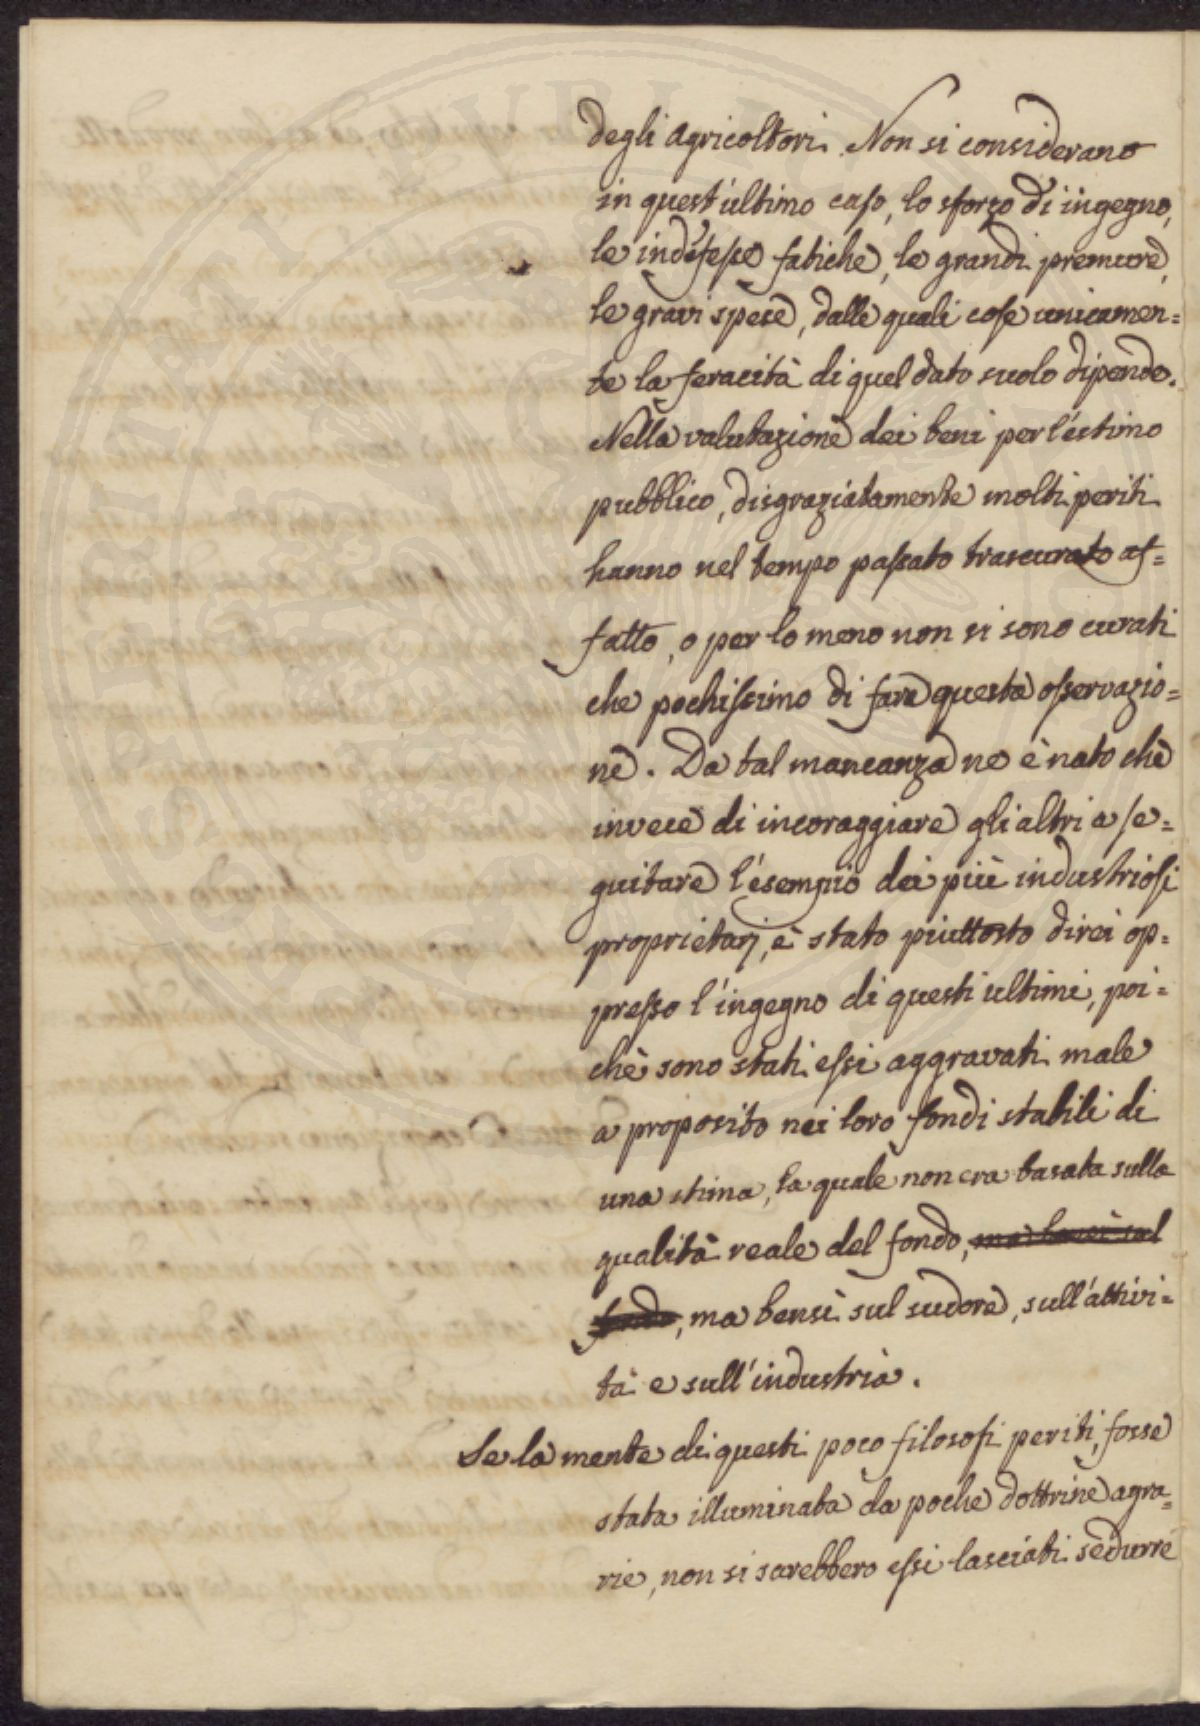 degli agricoltori. Non si considerano
in quest'ultimo caso, lo sforzo di ingegno,
le indefesse fatiche, le grandi premure,
le gravi spese, dalle quali cose unicamen=
te la feracità di quel dato suolo dipende.
Nella valutazione dei beni per l'estimo
pubblico, disgraziatamente molti periti
hanno nel tempo passato trascurato af=
fatto, o per lo meno non si sono curati
che pochissimo di fare questa osservazio=
ne. Da tal mancanza ne è nato che
invece di incoraggiare gli altri a se=
guitare l'esempio dei più industriosi
proprietarj, è stato piuttosto direi op=
presso l'ingegno di questi ultimi, poi=
chè sono stati essi aggravati male
a proposito nei loro fondi stabili di
una stima, la quale non era basata sulla
qualità reale del fondo,
fondo, ma bensì sul sudore, sull'attivi=
tà e sull'industria.
Se la mente di questi poco filosofi periti, fosse
stata illuminata da poche dottrine agra=
rie, non si sarebbero essi lasciati sedurre